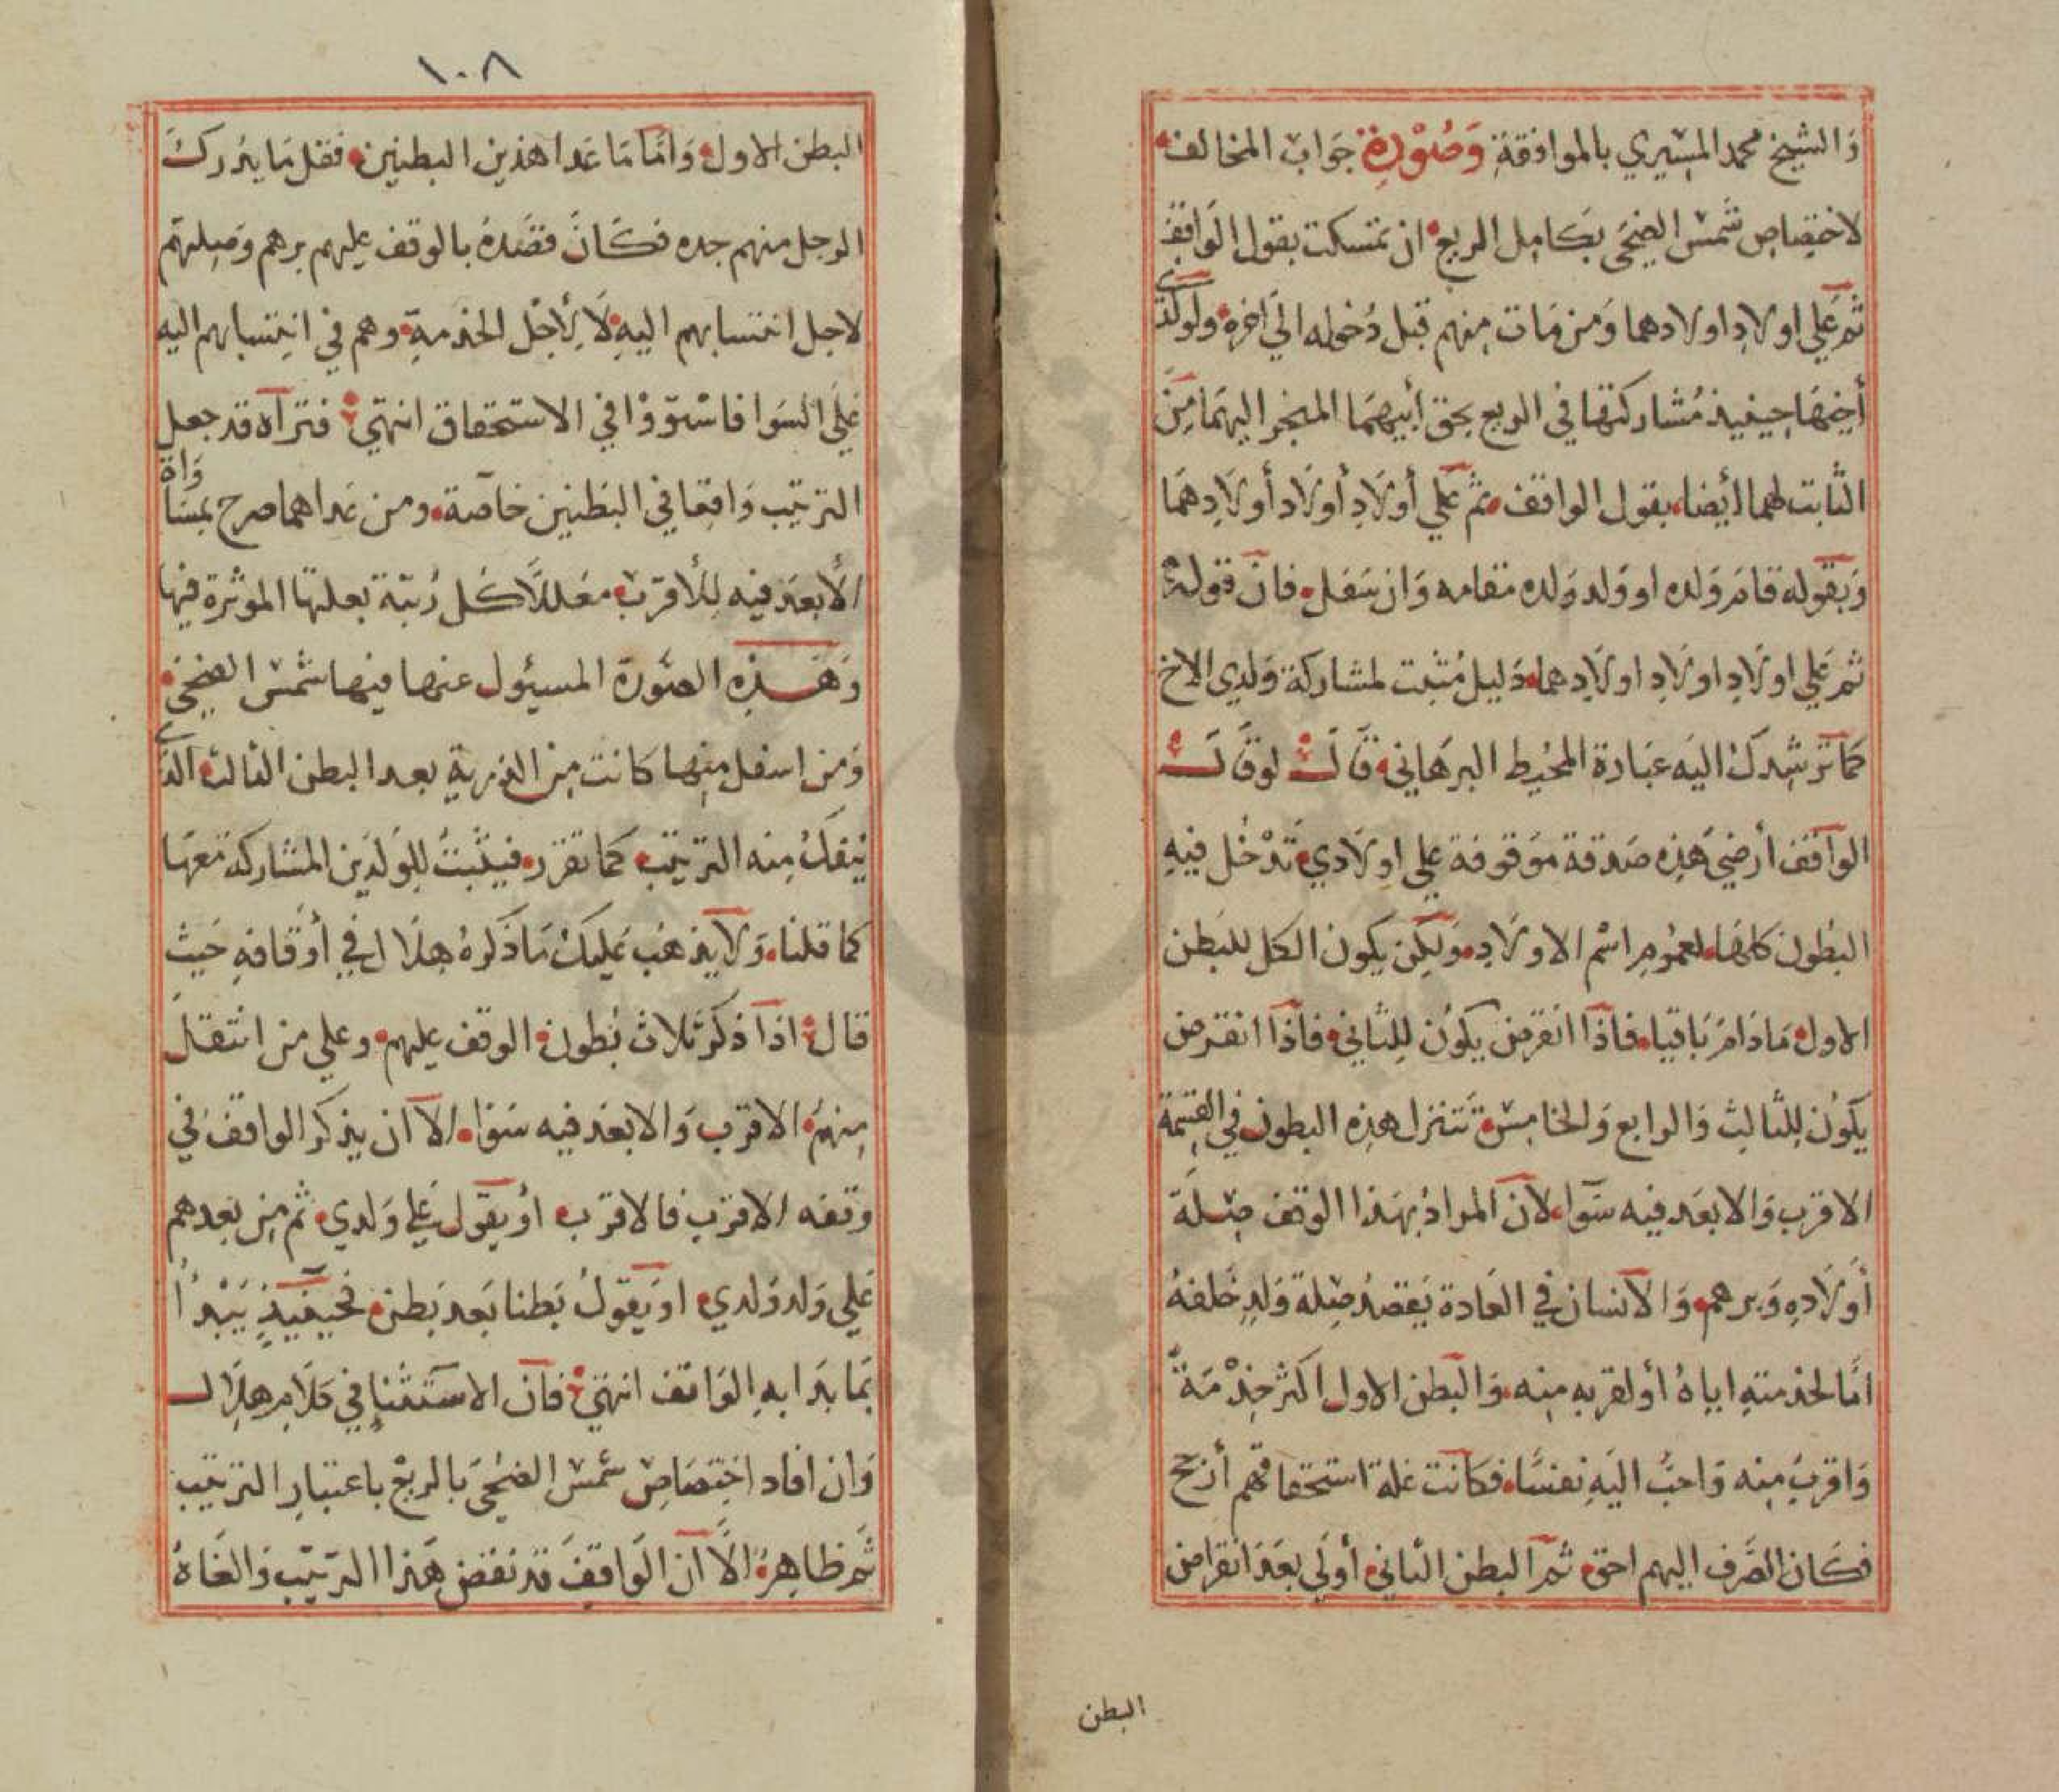 وَالشيخ محمد المسيري بالموافقة وَصُوْرة جَواب المخالف
لاختصاص شمس الضحَى بكامِل الربع ان تمسكت بقول الوَاقف
ثم عَلي اولادِ اولادهما وَمن مَات مِنهم قبل دُخوله الي آخره ولولدَي
أخيهَا حِينيذ مُشاركتها في الربع بحق أبيهمَا المنجر اليهمَا مِنَ
الثابت لهما أيضا بقول الواقف ثم عَلي أولَادِ أولَاد أولَادِهمَا
وَبقوله قامَ وَلده او وَلد وَلده مقامه وَان سَفل فانَ قوله
ثم عَلي اولَادِ اولَادِ اولَادِهما دَليل مُثبت لمشاركة وَلدي الاخ
كما ترشدكَ اليَه عبَارة المحُيط البرهَاني قَالَ لوقَالَ
الواقف أرضي هَذِه صَدقة موَقوفة عَلي اولَادي تَدْخُل فيهِ
البُطون كلهَا لعمُومِ اسْم الاولَادِ وَلكِن يكون الكل للبَطن
الاول مَادَامَ بَاقيا فاذا انقرض يكوُن لِلثاني فاذا انقرض
يكوُن لِلثالث وَالرابع وَالخامِس تَتنزل هذِه البطون في القسمة
الاقرب وَالابعَد فيه سَوا لانَ المرادُ بهَذا الوقف صِلَة
أوَلَادِه وَبرهم وَالانسان في العَادة يَقصد صِلة وَلدِ خَلفهُ
امَّا لخدمتهِ اياهُ أو لقربهِ مِنه وَالبَطن الاول اكثر خِدْمَة
وَاقربَ مِنه وَاحبّ اليَهِ نفسًا فكانت علة استحقاقهم أرجح
فكَان الصَّرف اليهم احق ثم البَطن الثاني أولَي بعَد انقراض
البطن
١٠٨
البَطن الاول وَامَّا مَا عَدا هذين البطنين فقل مَا يدُركَ
الرجل منهم جده فكَانَ قصَدهُ بالوقف عليهم برهم وَصِلتهم
لاجل انتسابهم اليهِ لَا لِأجْل الخدمةِ وهم في انتِسَابهم اليه
عَلَي السَوا فاسْتوَوْا في الاستحقاق انتهي فترآه قد جعل
الترتيب وَاقِعا في البَطنين خاصة ومن عَداهما صرح بمسَاوَاة
الأبعَد فيه للأقرَب معَللًا كل رُتبَة بعلتها الموثرة فيها
وَهَذِهِ الصُورة المسيُول عنها فيها شمْس الضحي
وَمن اسفل مِنها كانت مِن الذرية بعد البطن الثالث الذَي
يَنفكُ مِنه الترتيب كما تقرر فيَثبتُ لِلوَلدَين المشاركة مَعَهَا
كما قلنا وَلَا يذهَب عَليكَ مَا ذَكرهُ هِلَال في أوقَافهِ حَيث
قال اذا ذكرَ ثلاث بُطون الوقف عليهم وعلي من انتقلَ
مِنهُم الاقرب وَالابعَد فيه سَوا الا ان يذكر الواقف في
وَقفه الاقرَب فالاقرَب أو يقوَل عَلي وَلدي ثم مِن بعدهم
عَلي وَلد وَلدي او يَقولُ بَطنا بَعد بَطن فحينَيذٍ يَبْدأُ
بمَا بَدا بهِ الوَاقف انتهَي فان الاستثنا في كلَام هِلَال
وَان افاد اختِصَاص شمْس الضحَي بَالربع باعتبارِ الترتيب
ثم ظاهِره الَّا ان الوَاقفَ قد نقض هَذا الترتيب وَالغَاهُ